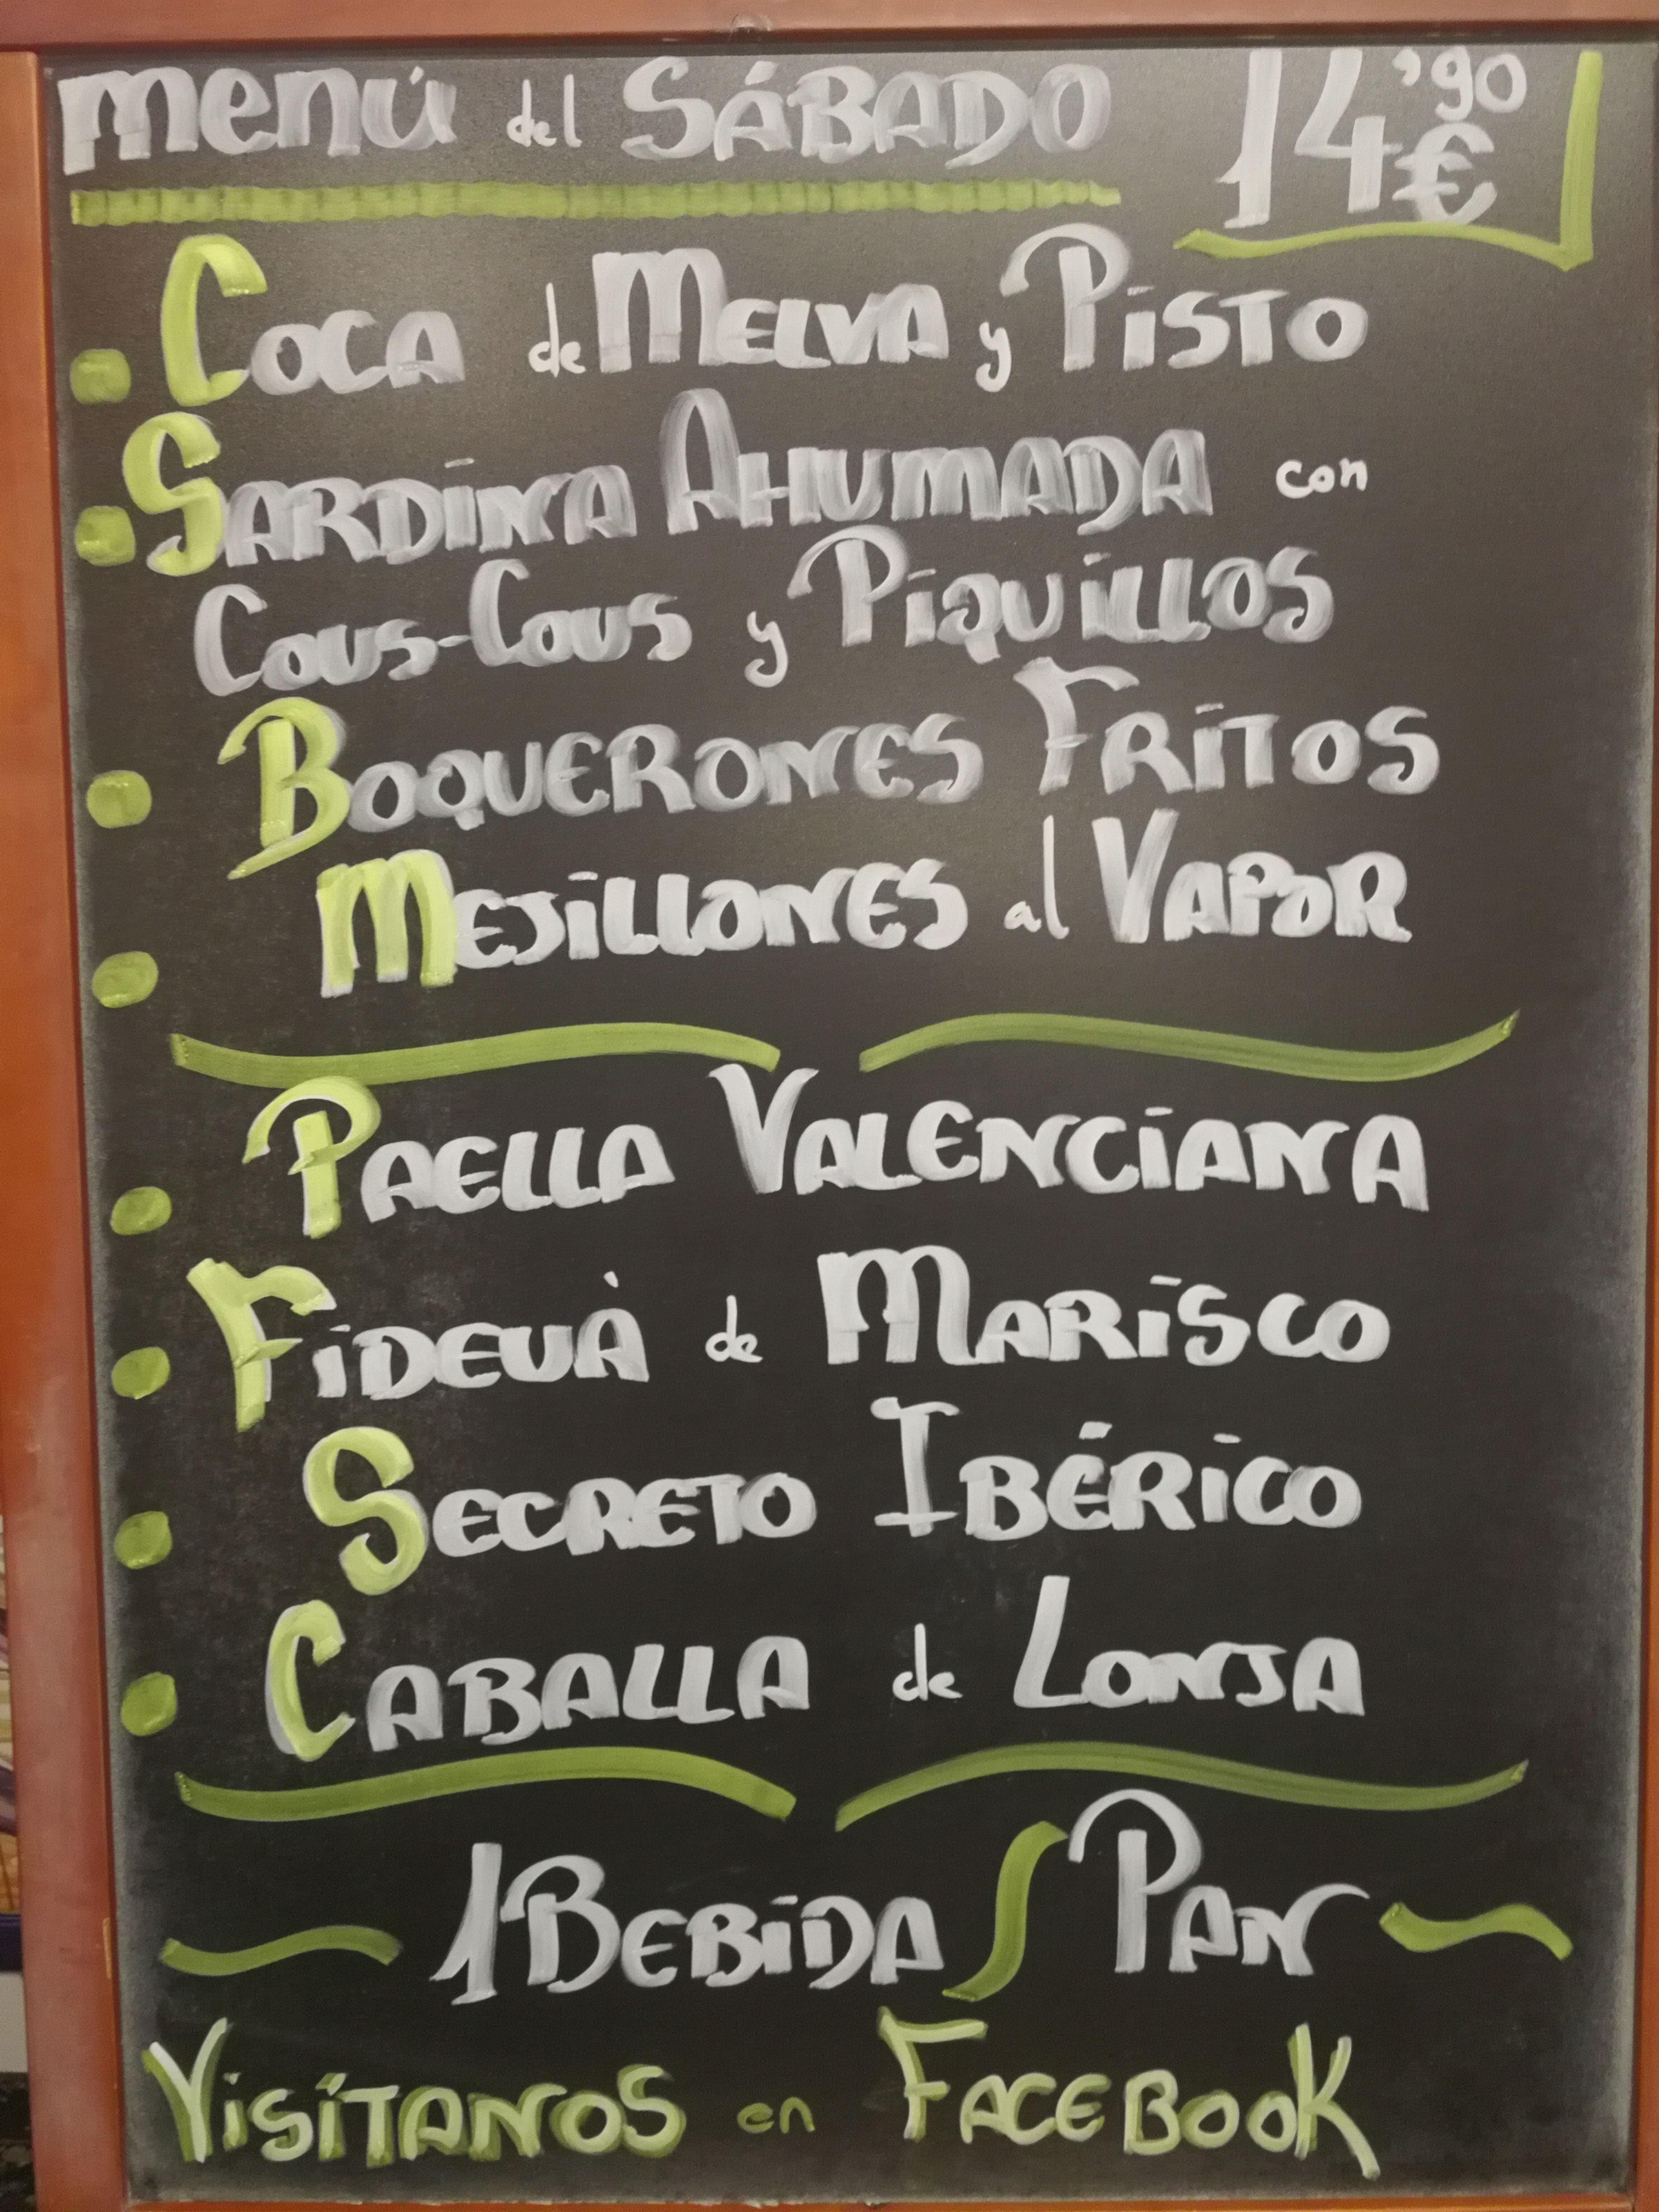 menú del SÁBADO 14'90€
COCA de MELVA y PISTO
SARDINA AHUMADA con
COUS-COUS y PIQUILLOS
BOQUERONES FRITOS
MEJILLONES al VAPOR
PAELLA VALENCIANA
FIDEUÀ de MARISCO
SECRETO IBÉRICO
CABALLA de LONJA
1 BEBIDA / PAN
VISÍTANOS en FACEBOOK